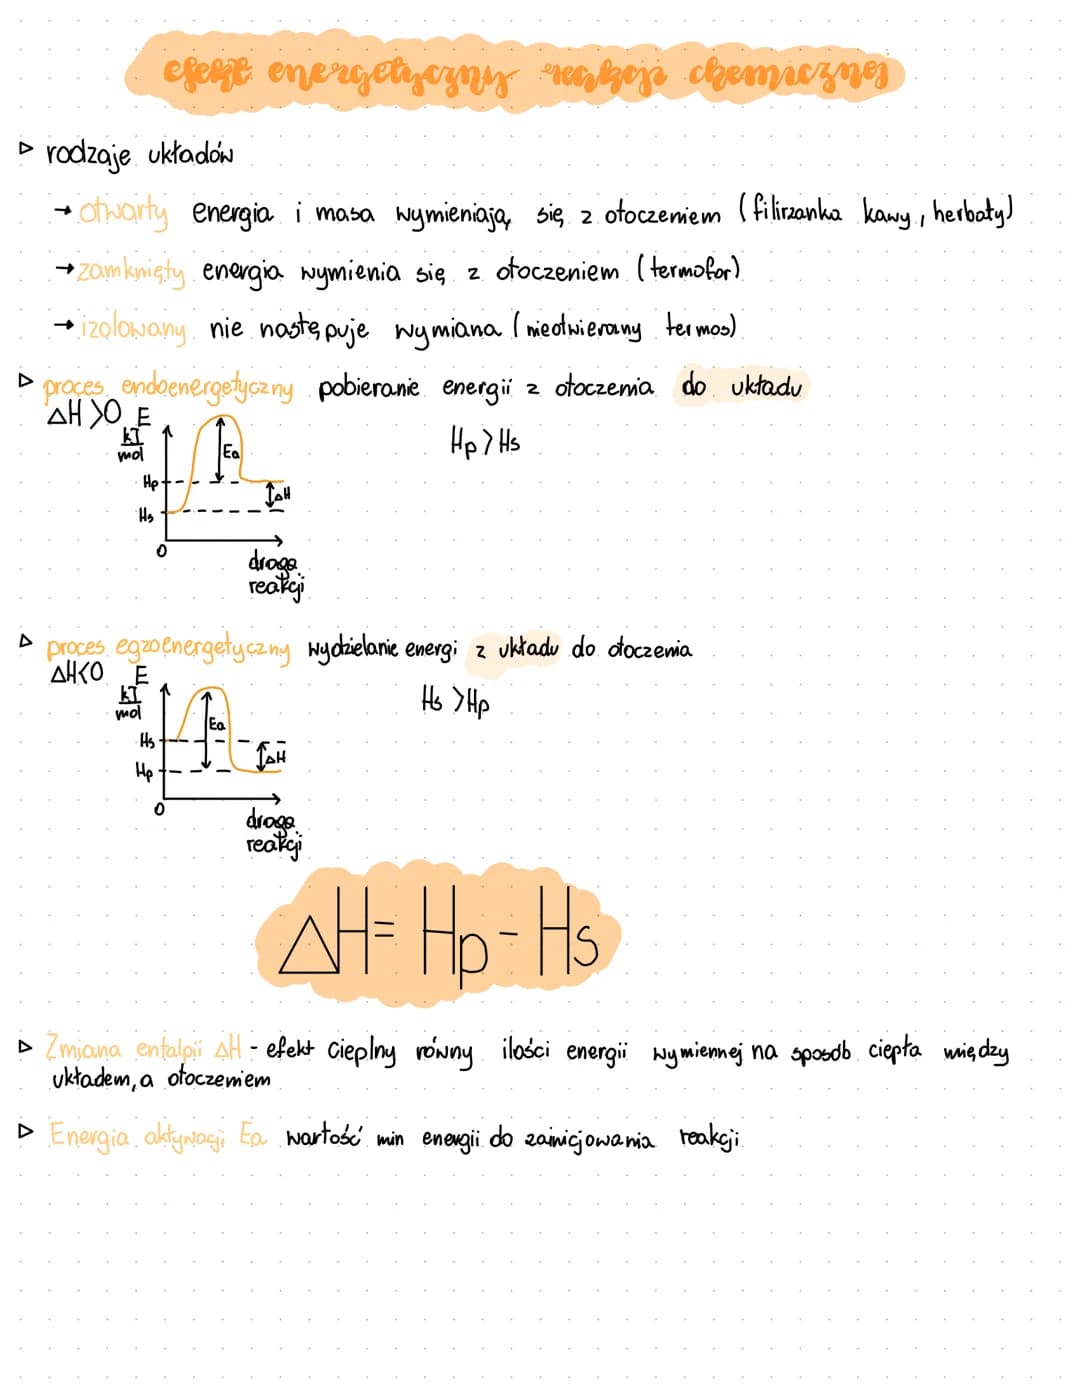 efekt energetyczny reakcji chemicznej
▷ rodzaje układów
→ otwarty energia i masa wymieniają się z otoczeniem (filirzanka kawy, herbaty)
→ zamknięty energia wymienia się z otoczeniem (termofor)
→ izolowany nie następuje wymiana (nieotwierany termos)
▷ proces endoenergetyczny pobieranie energii z otoczenia do układu
ΔH>0 E
kJ
mol
Hp>Hs
Ea
Hp
ΔH
Hs
0
droga
reakcji
▷ proces egzoenergetyczny wydzielanie energi z układu do otoczenia
ΔH<0 E
kJ
mol
Hs >Hp
Ea
Hs
ΔH
Hp
0
droga
reakcji
ΔH= Hp - Hs
▷ Zmiana entalpii ΔH - efekt cieplny równy ilości energii wymiennej na sposób ciepła między
układem, a otoczeniem
▷ Energia aktywacji Ea wartość min energii do zainicjowania reakcji